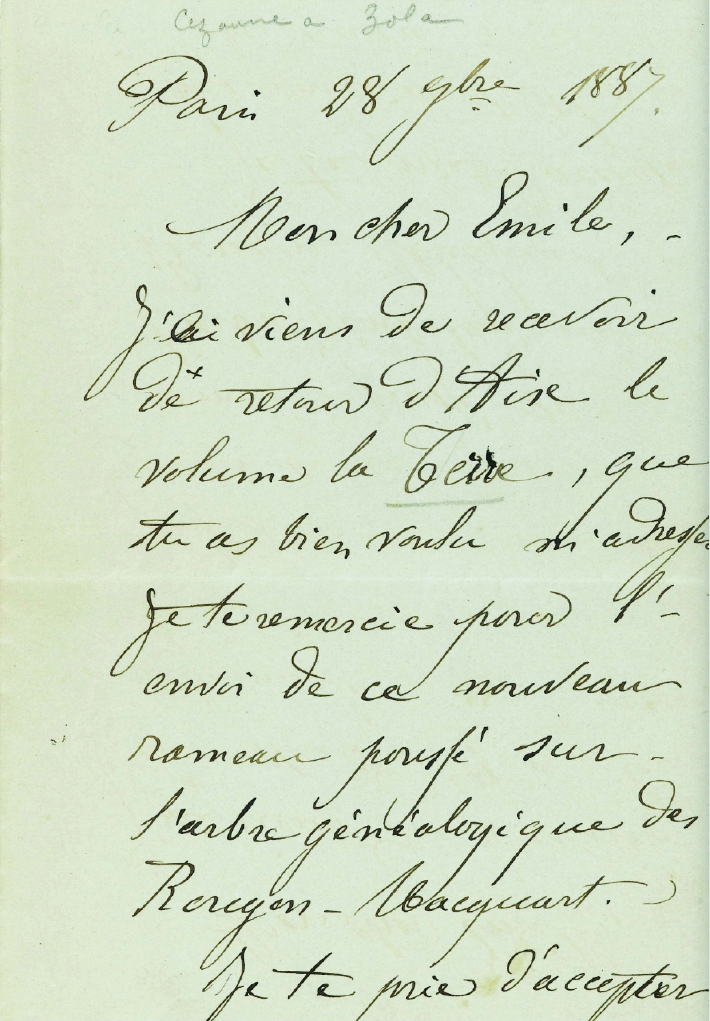 Cezanne a Zola
Paris 28 9bre 1887.
Mon cher Emile, -
J'ai viens de recevoir
de retour d'Aix le
volume la Terre, que
tu as bien voulu m'adresser
Je te remercie pour l'-
envoi de ce nouveau
rameau poussé sur -
l'arbre généalogique des
Rougon-Macquart.
Je te prie d'accepter